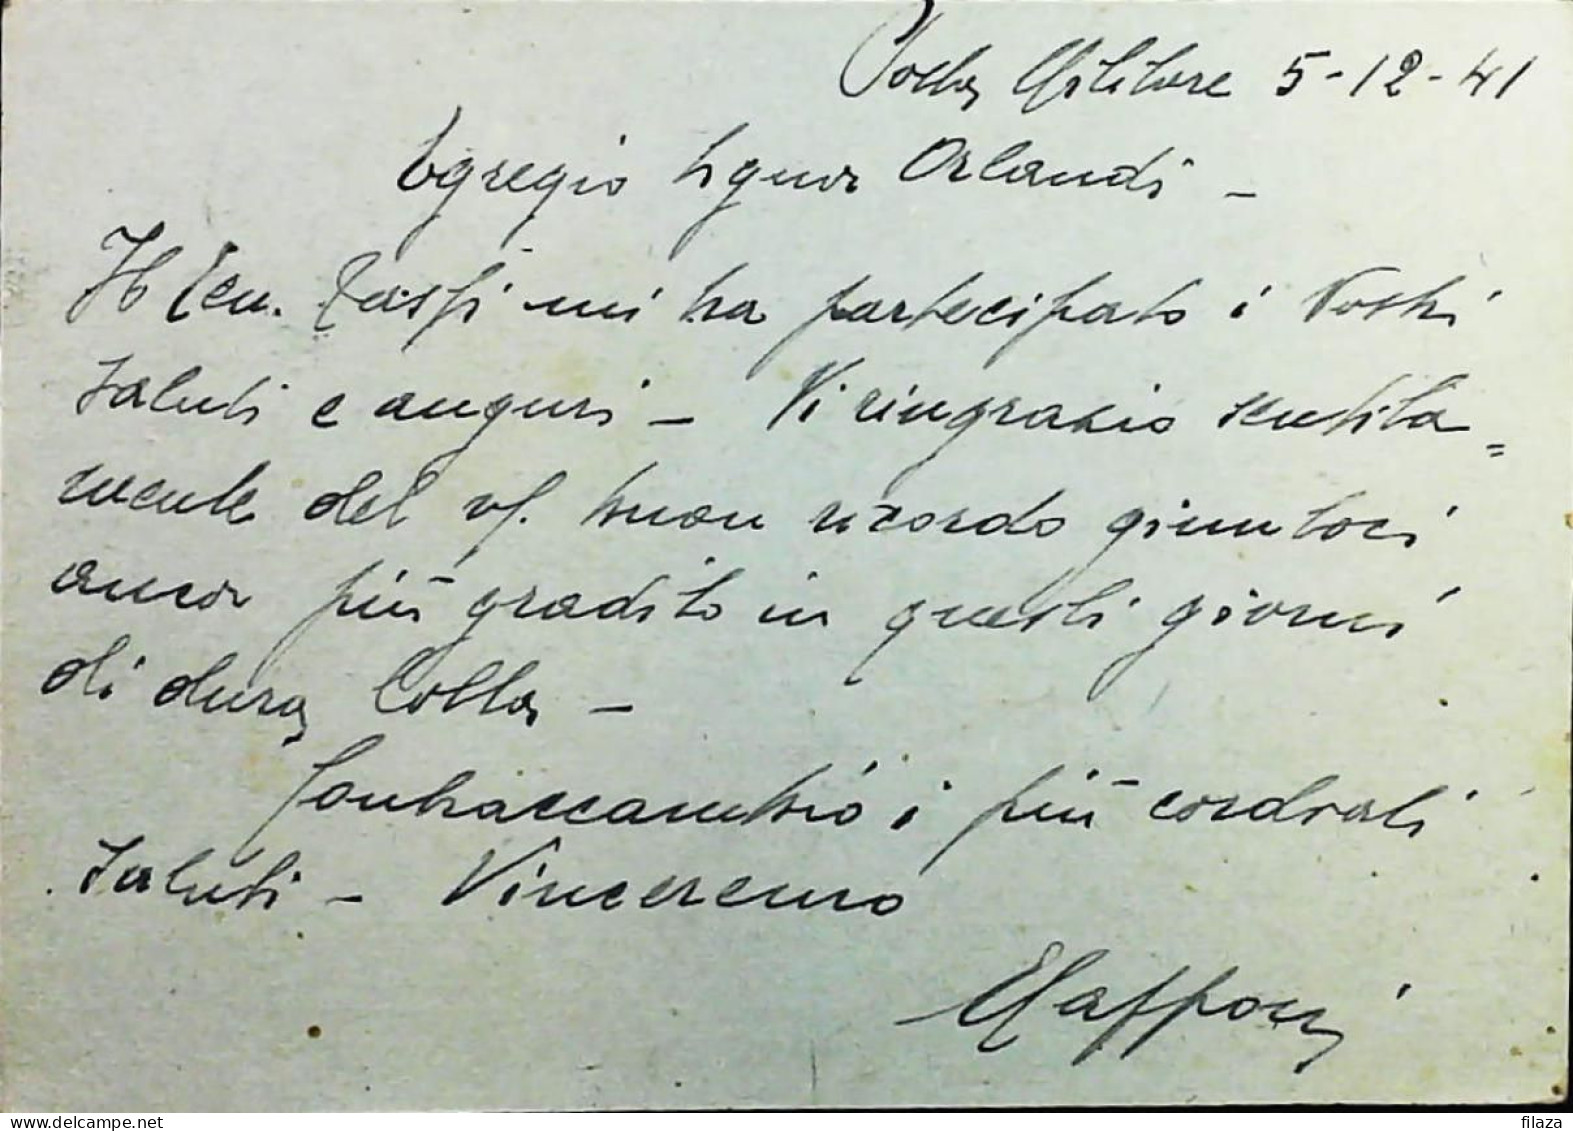 Posta Militare 5-12-41
Egregio Signor Orlandi -
Il Ten. mi ha partecipato i Vostri
saluti e auguri - Vi ringrazio sentita=
mente del vs. buon ricordo giuntoci
ancor più gradito in questi giorni
di dura lotta -
Contraccambio i più cordiali
saluti - Vinceremo
filaza